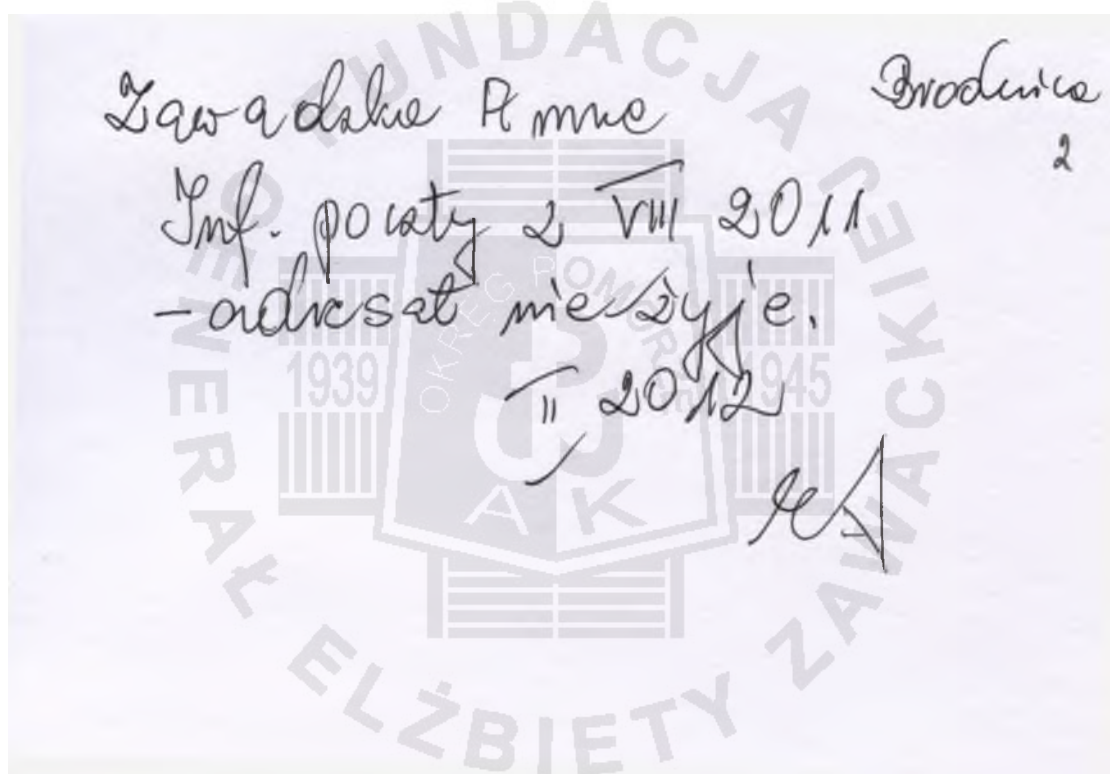 Zawadzka Anna
Brodnica
2
Inf. poczty z VIII 2011
- adresat nie żyje.
II 2012
FUNDACJA GENERAŁ ELŻBIETY ZAWACKIEJ
OKRĘG POMORZE
1939 1945
AK